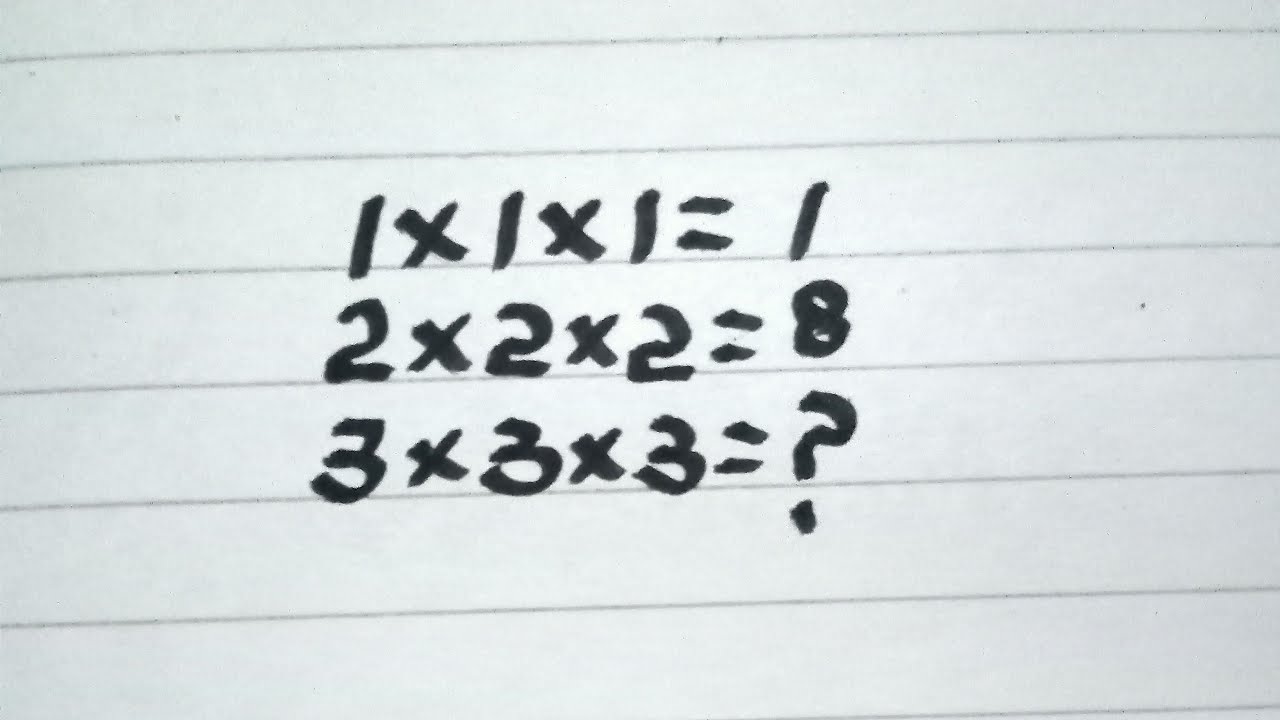 1×1×1=1
2×2×2=8
3×3×3=?